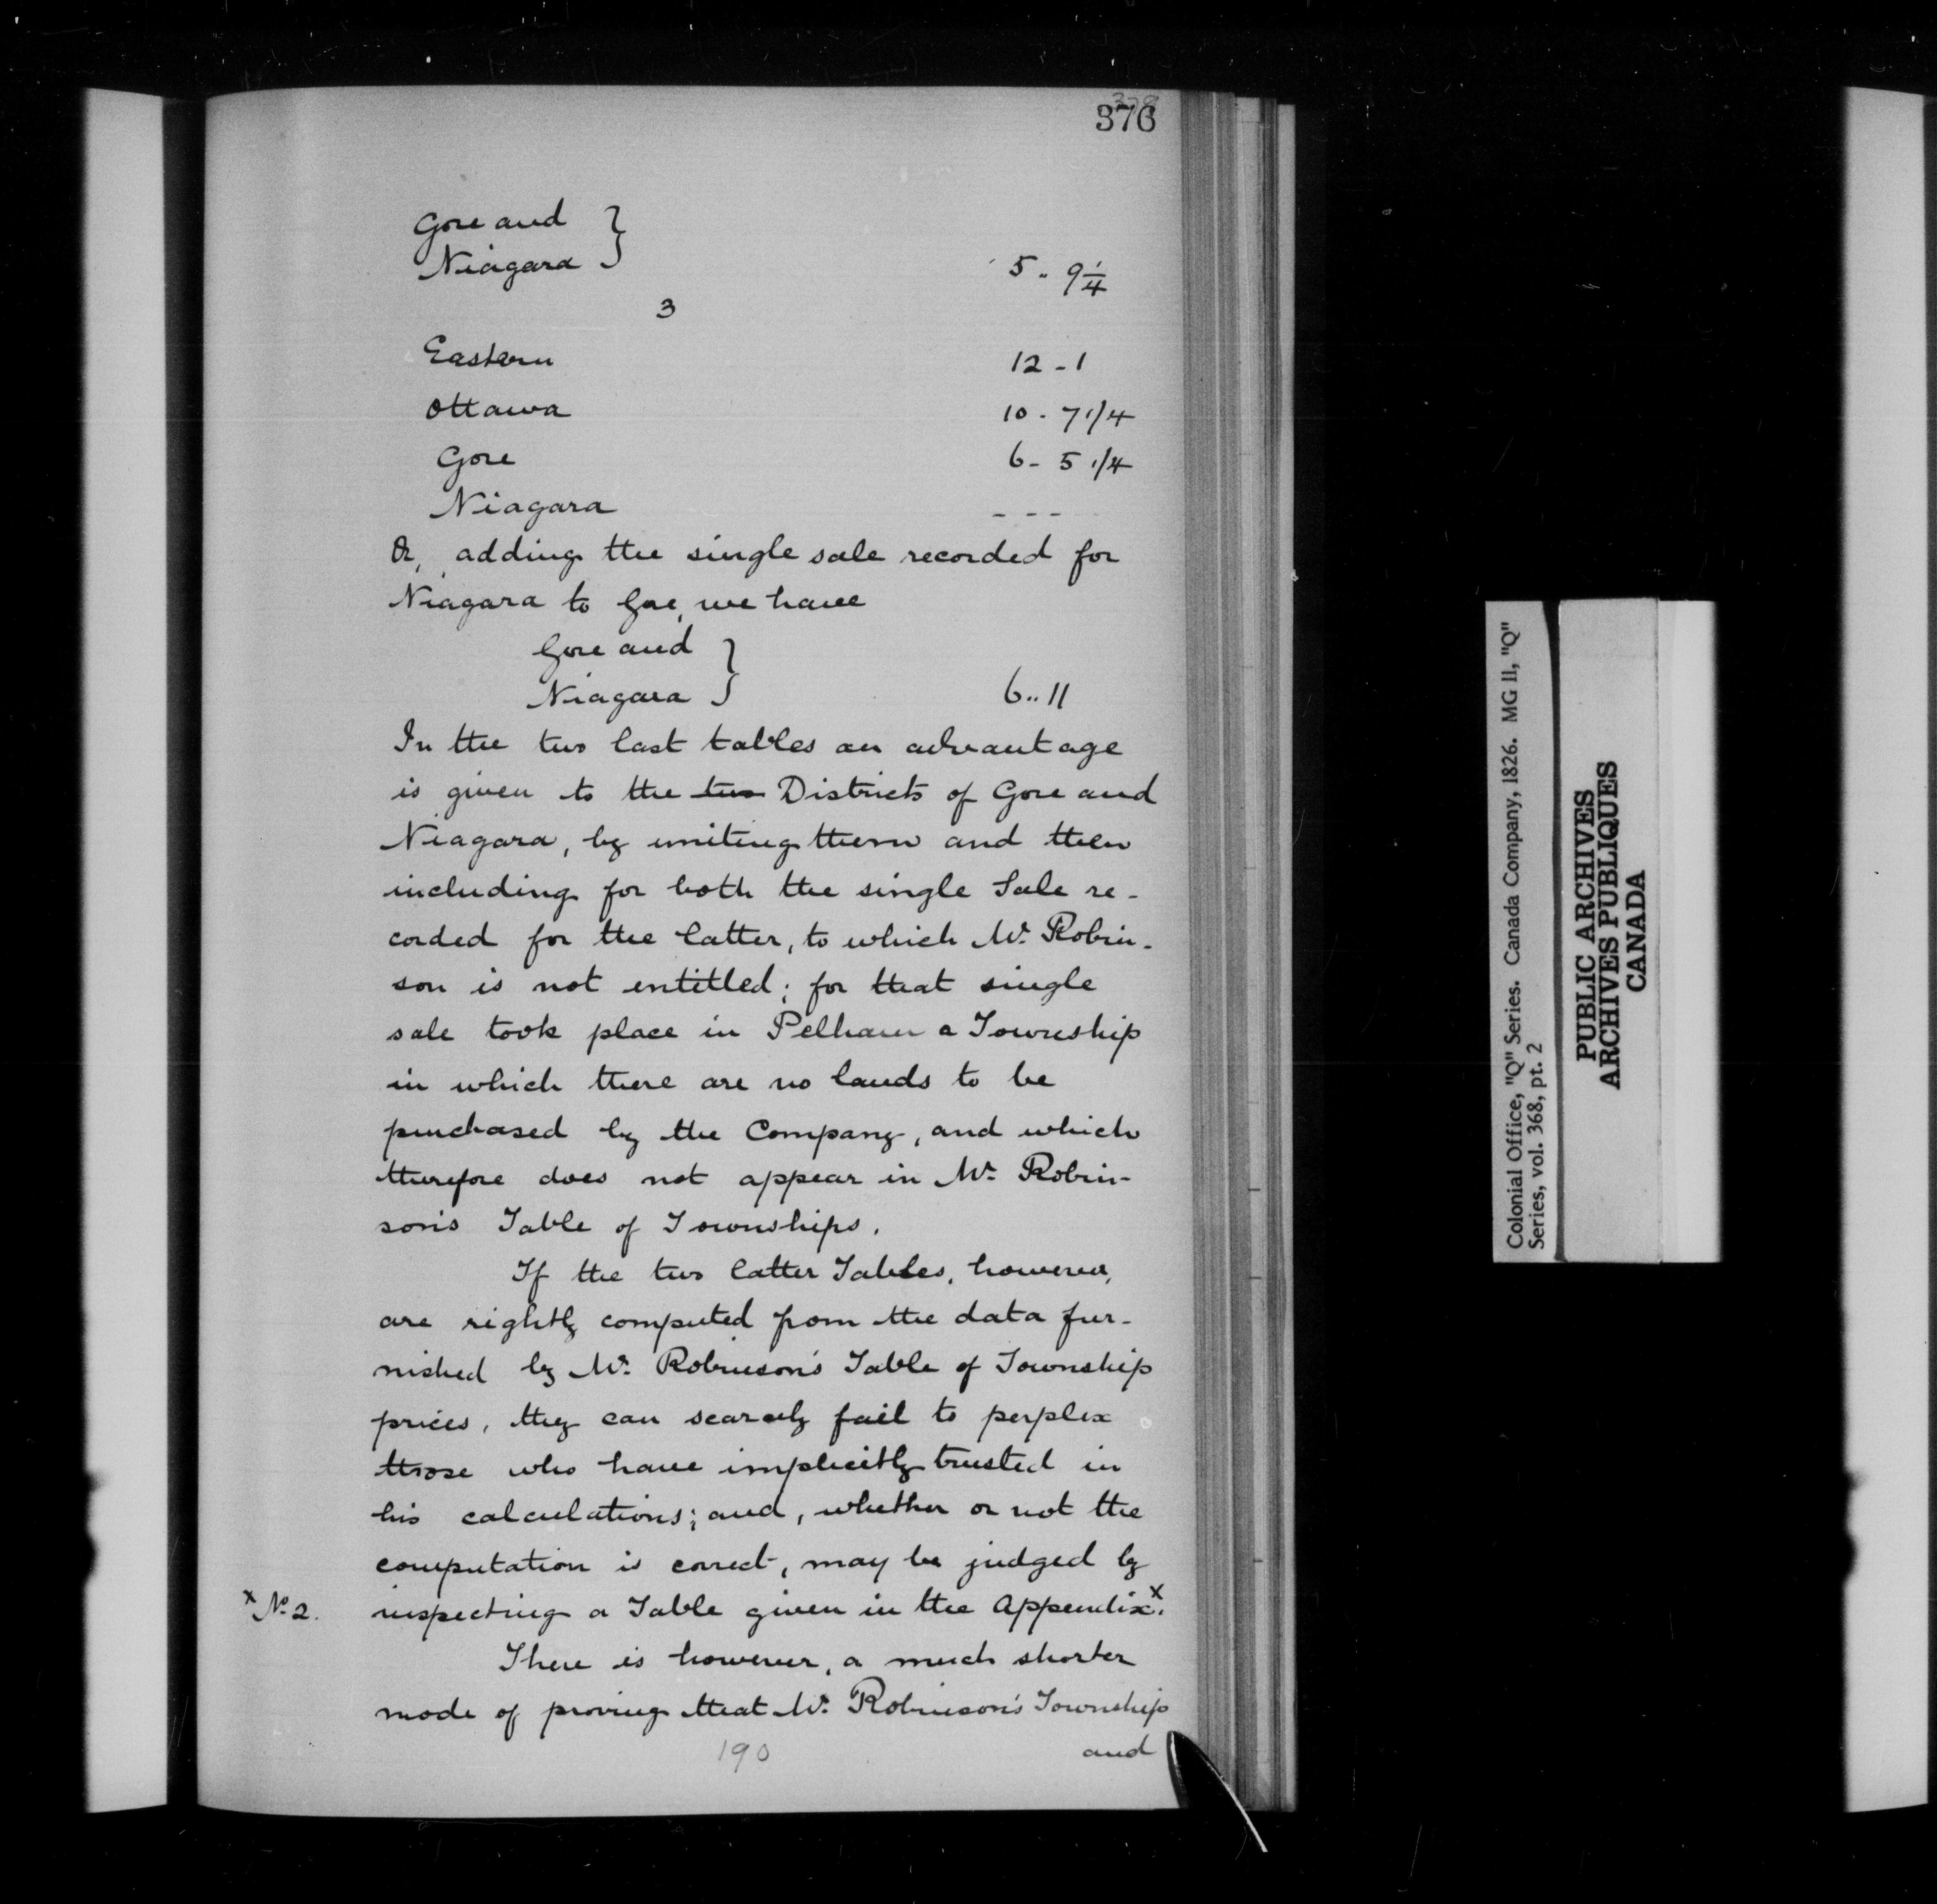 376
Gore and }
Niagara } 5 .. 9 1/4
3
Eastern 12 - 1
Ottawa 10 - 7 1/4
Gore 6 - 5 1/4
Niagara - - -
Or, adding the single sale recorded for
Niagara to Gore, we have
Gore and }
Niagara } 6 .. 11
In the two last tables an advantage
is given to the two Districts of Gore and
Niagara, by uniting them and then
including for both the single Sale re-
corded for the latter, to which Mr. Robin-
son is not entitled; for that single
sale took place in Pelham a Township
in which there are no lands to be
purchased by the Company, and which
therefore does not appear in Mr. Robin-
son's Table of Townships.
If the two latter Tables, however,
are rightly computed from the data fur-
nished by Mr. Robinson's Table of Township
prices, they can scarcely fail to perplex
those who have implicitly trusted in
his calculations; and, whether or not the
computation is correct, may be judged by
x No. 2. inspecting a Table given in the Appendix x.
There is however, a much shorter
mode of proving that Mr. Robinson's Township
and
190
Colonial Office, "Q" Series. Canada Company, 1826. MG 11, "Q"
Series, vol. 368, pt. 2
PUBLIC ARCHIVES
ARCHIVES PUBLIQUES
CANADA